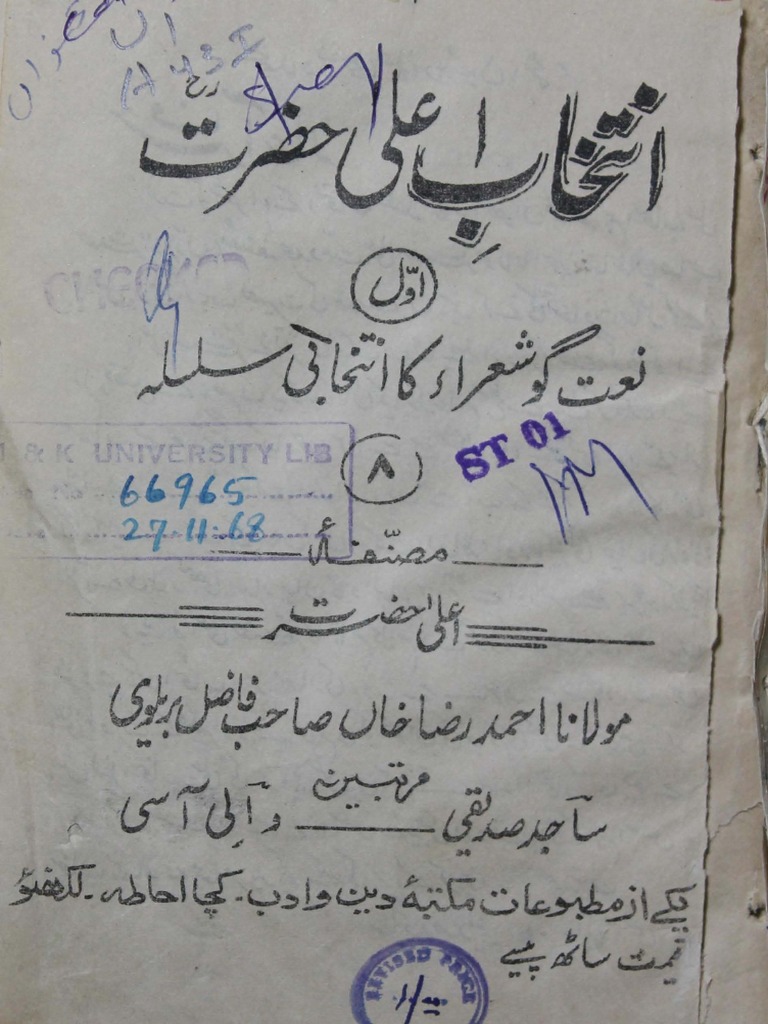 A431
انتخابِ اعلیٰ حضرت رح
اوّل
CHECKED
نعت گو شعراء کا انتخابی سلسلہ
J & K UNIVERSITY LIB
۸
ST 01
No 66965
27-11-68
مصنفہٗ
اعلیٰ حضرت
مولانا احمد رضا خاں صاحب فاضل بریلوی
مرتبین
ساجد صدیقی و آلی آسی
یکے از مطبوعات مکتبۂ دین و ادب۔ کچا احاطہ۔ لکھنؤ
قیمت ساٹھ پیسے
REVISED PRICE
1/=